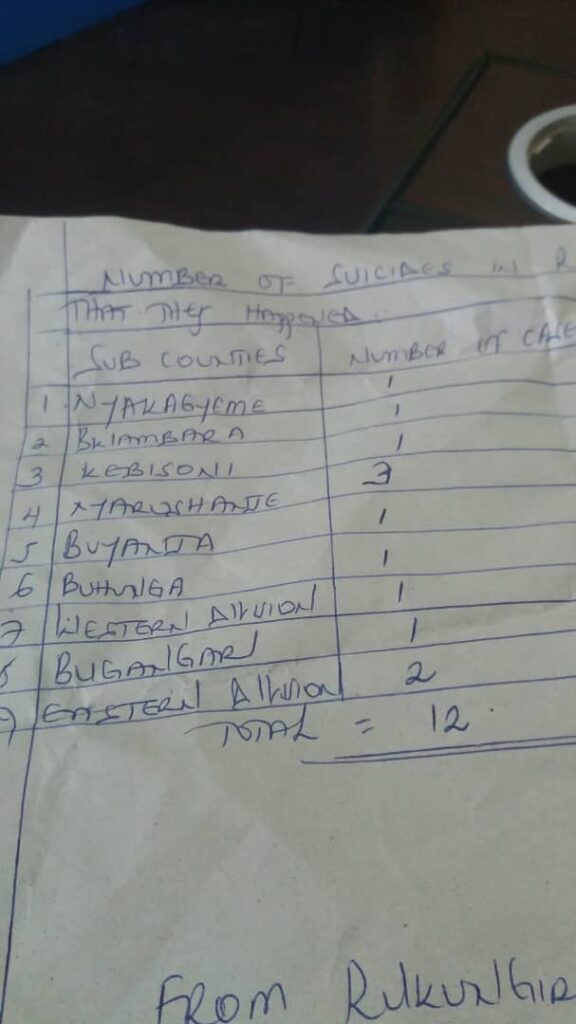 NUMBER OF SUICIDES IN R
THAT THEY HAPPENED
SUB COUNTIES NUMBER OF CASE
1 NYAKAGYEME 1
2 BWAMBARA 1
3 KEBISONI 1
4 NYARUSHANJE 3
5 BUYANJA 1
6 BUHUNGA 1
7 WESTERN DIVISION 1
8 BUGANGARI 1
9 EASTERN DIVISION 2
TOTAL = 12
FROM RUKUNGIR